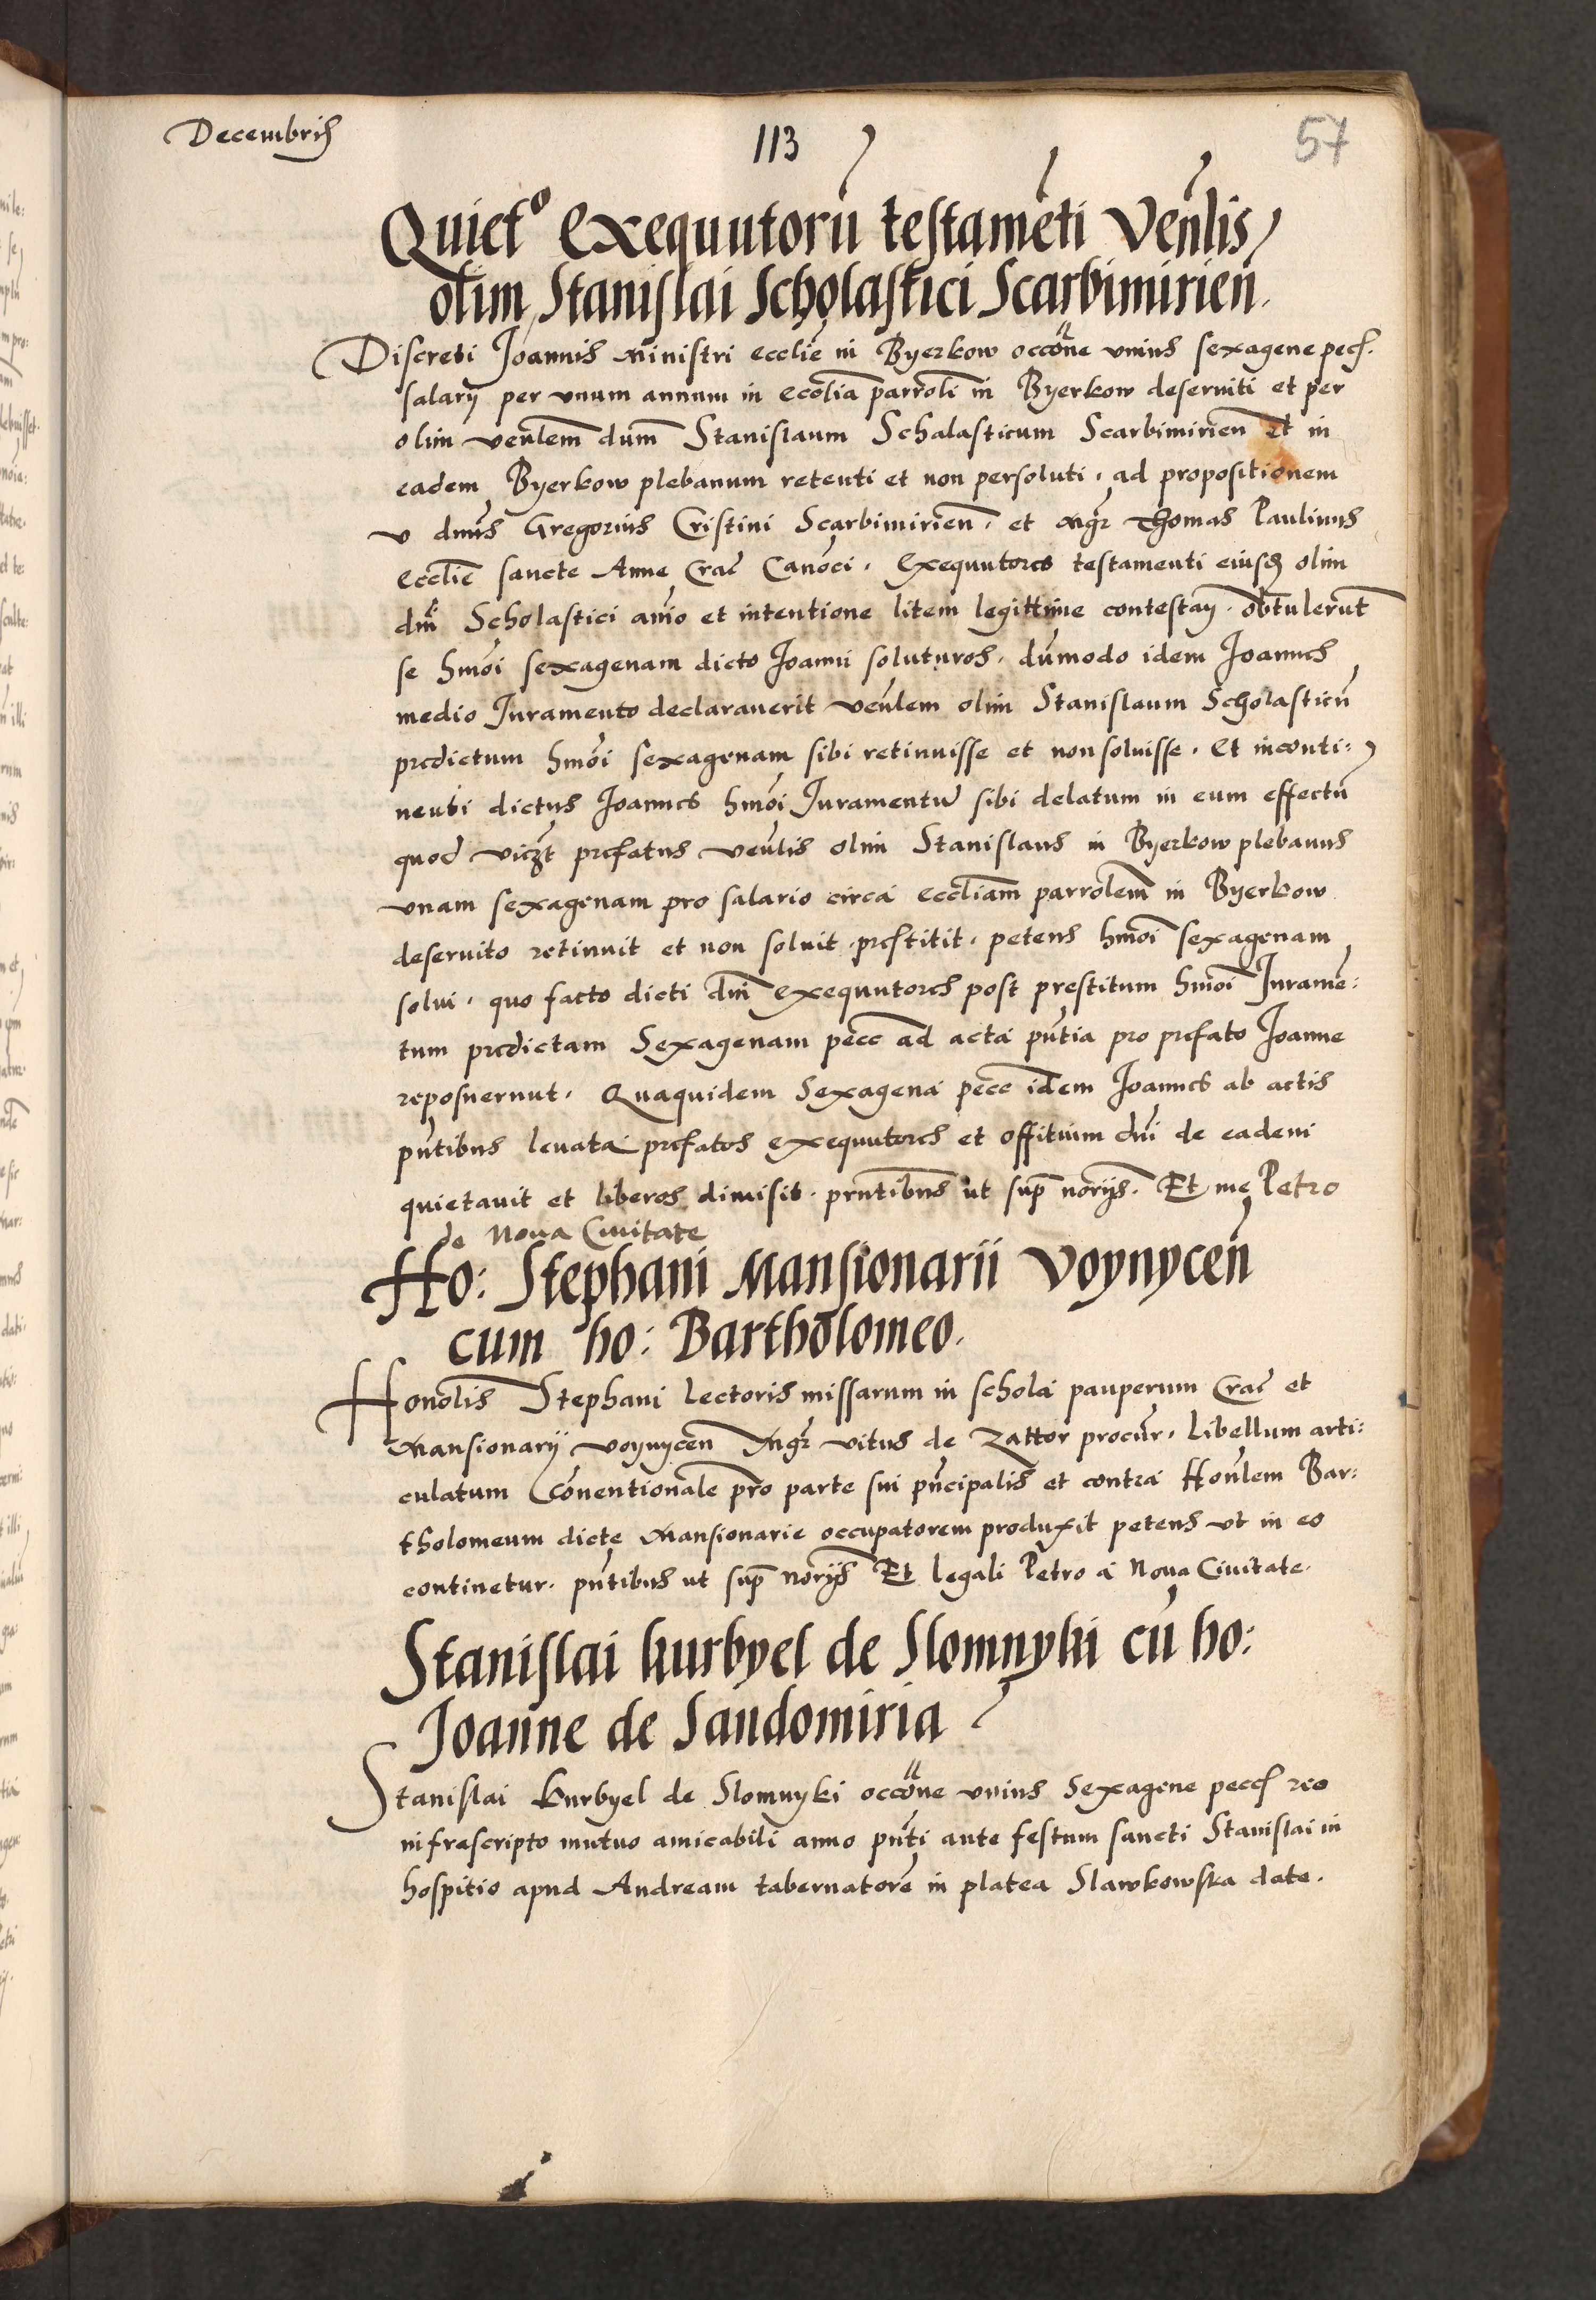 Decembris
113
57
Quietº Exequutorū testamēti Venlis
olim Stanislai Scholastici Scarbimirien̄.
Discreti Joannis ministri ecclīe in Byerkow occōne vnius sexagene pecſ.
salarij per vnum annum in eccliā parrolī in Byerkow deseruiti et per
olim venlem dnum Stanislaum Schalasticum Scarbimirien̄ Et in
eadem Byerkow plebanum retenti et non persoluti. ad propositionem
v dnus Gregorius Cristini Scarbimirien̄. et Mgr̄ Thomas Paulinus
Ecclīe sancte Anne Crac̄ Canoci. Exequutores testamenti eiusꝫ olim
dnī Scholastici anīo et intentione litem legittime contestaꝝ. obtulerūt
se hmōi sexagenam dicto Joanni soluturos. dūmodo idem Joannes
medio Juramento declarauerit venlem olim Stanislaum Scholasticū
predictum hmōi sexagenam sibi retinuisse et non soluisse. Et inconti=
nenti dictus Joannes hmōi Juramentū sibi delatum in eum effectū
quod viczt prefatus venlis olim Stanislaus in Byerkow plebanus
vnam sexagenam pro salario circa eccliam parrolem in Byerkow
deseruito retinuit et non soluit. prestitit. petens hmōi sexagenam
solui. quo facto dicti dnī Exequutores post prestitum hmōi Juramē:
tum predictam Sexagenam pecc̄ ad acta pn̄tia pro prefato Joanne
reposuerunt. Quaquidem Sexagena pecc̄ idem Joannes ab actis
pn̄tibus leuata prefatos exequutores et offitium dnī de eadem
quietauit et liberos dimisit. prn̄tibus ut supͣ norijs. Et me Petro
de Noua Ciuitate
Ho: Stephani Mansionarii Voynycen̄
cum ho: Bartholomeo.
Honolis Stephani lectoris missarum in schola pauperum Crac̄ et
Mansionarij voynycen̄ Mgr̄ vitus de Zattor procur̄. libellum arti:
culatum Conuentionale pro parte sui pn̄cipalis et contra Honlem Bar:
tholomeum dicte Mansionarie occupatorem produxit petens vt in eo
continetur. pn̄tibus ut supͣ norijs Et legali Petro a Noua Ciuitate.
Stanislai kurbyel de Slomnyki cū ho:
Joanne de Sandomiria
Stanislai kurbyel de Slomnyki occōne vnius Sexagene peccſ reo
infrascripto mutuo amicabili anno pn̄ti ante festum sancti Stanislai in
hospitio apud Andream tabernatorē in platea Slawkowska date.